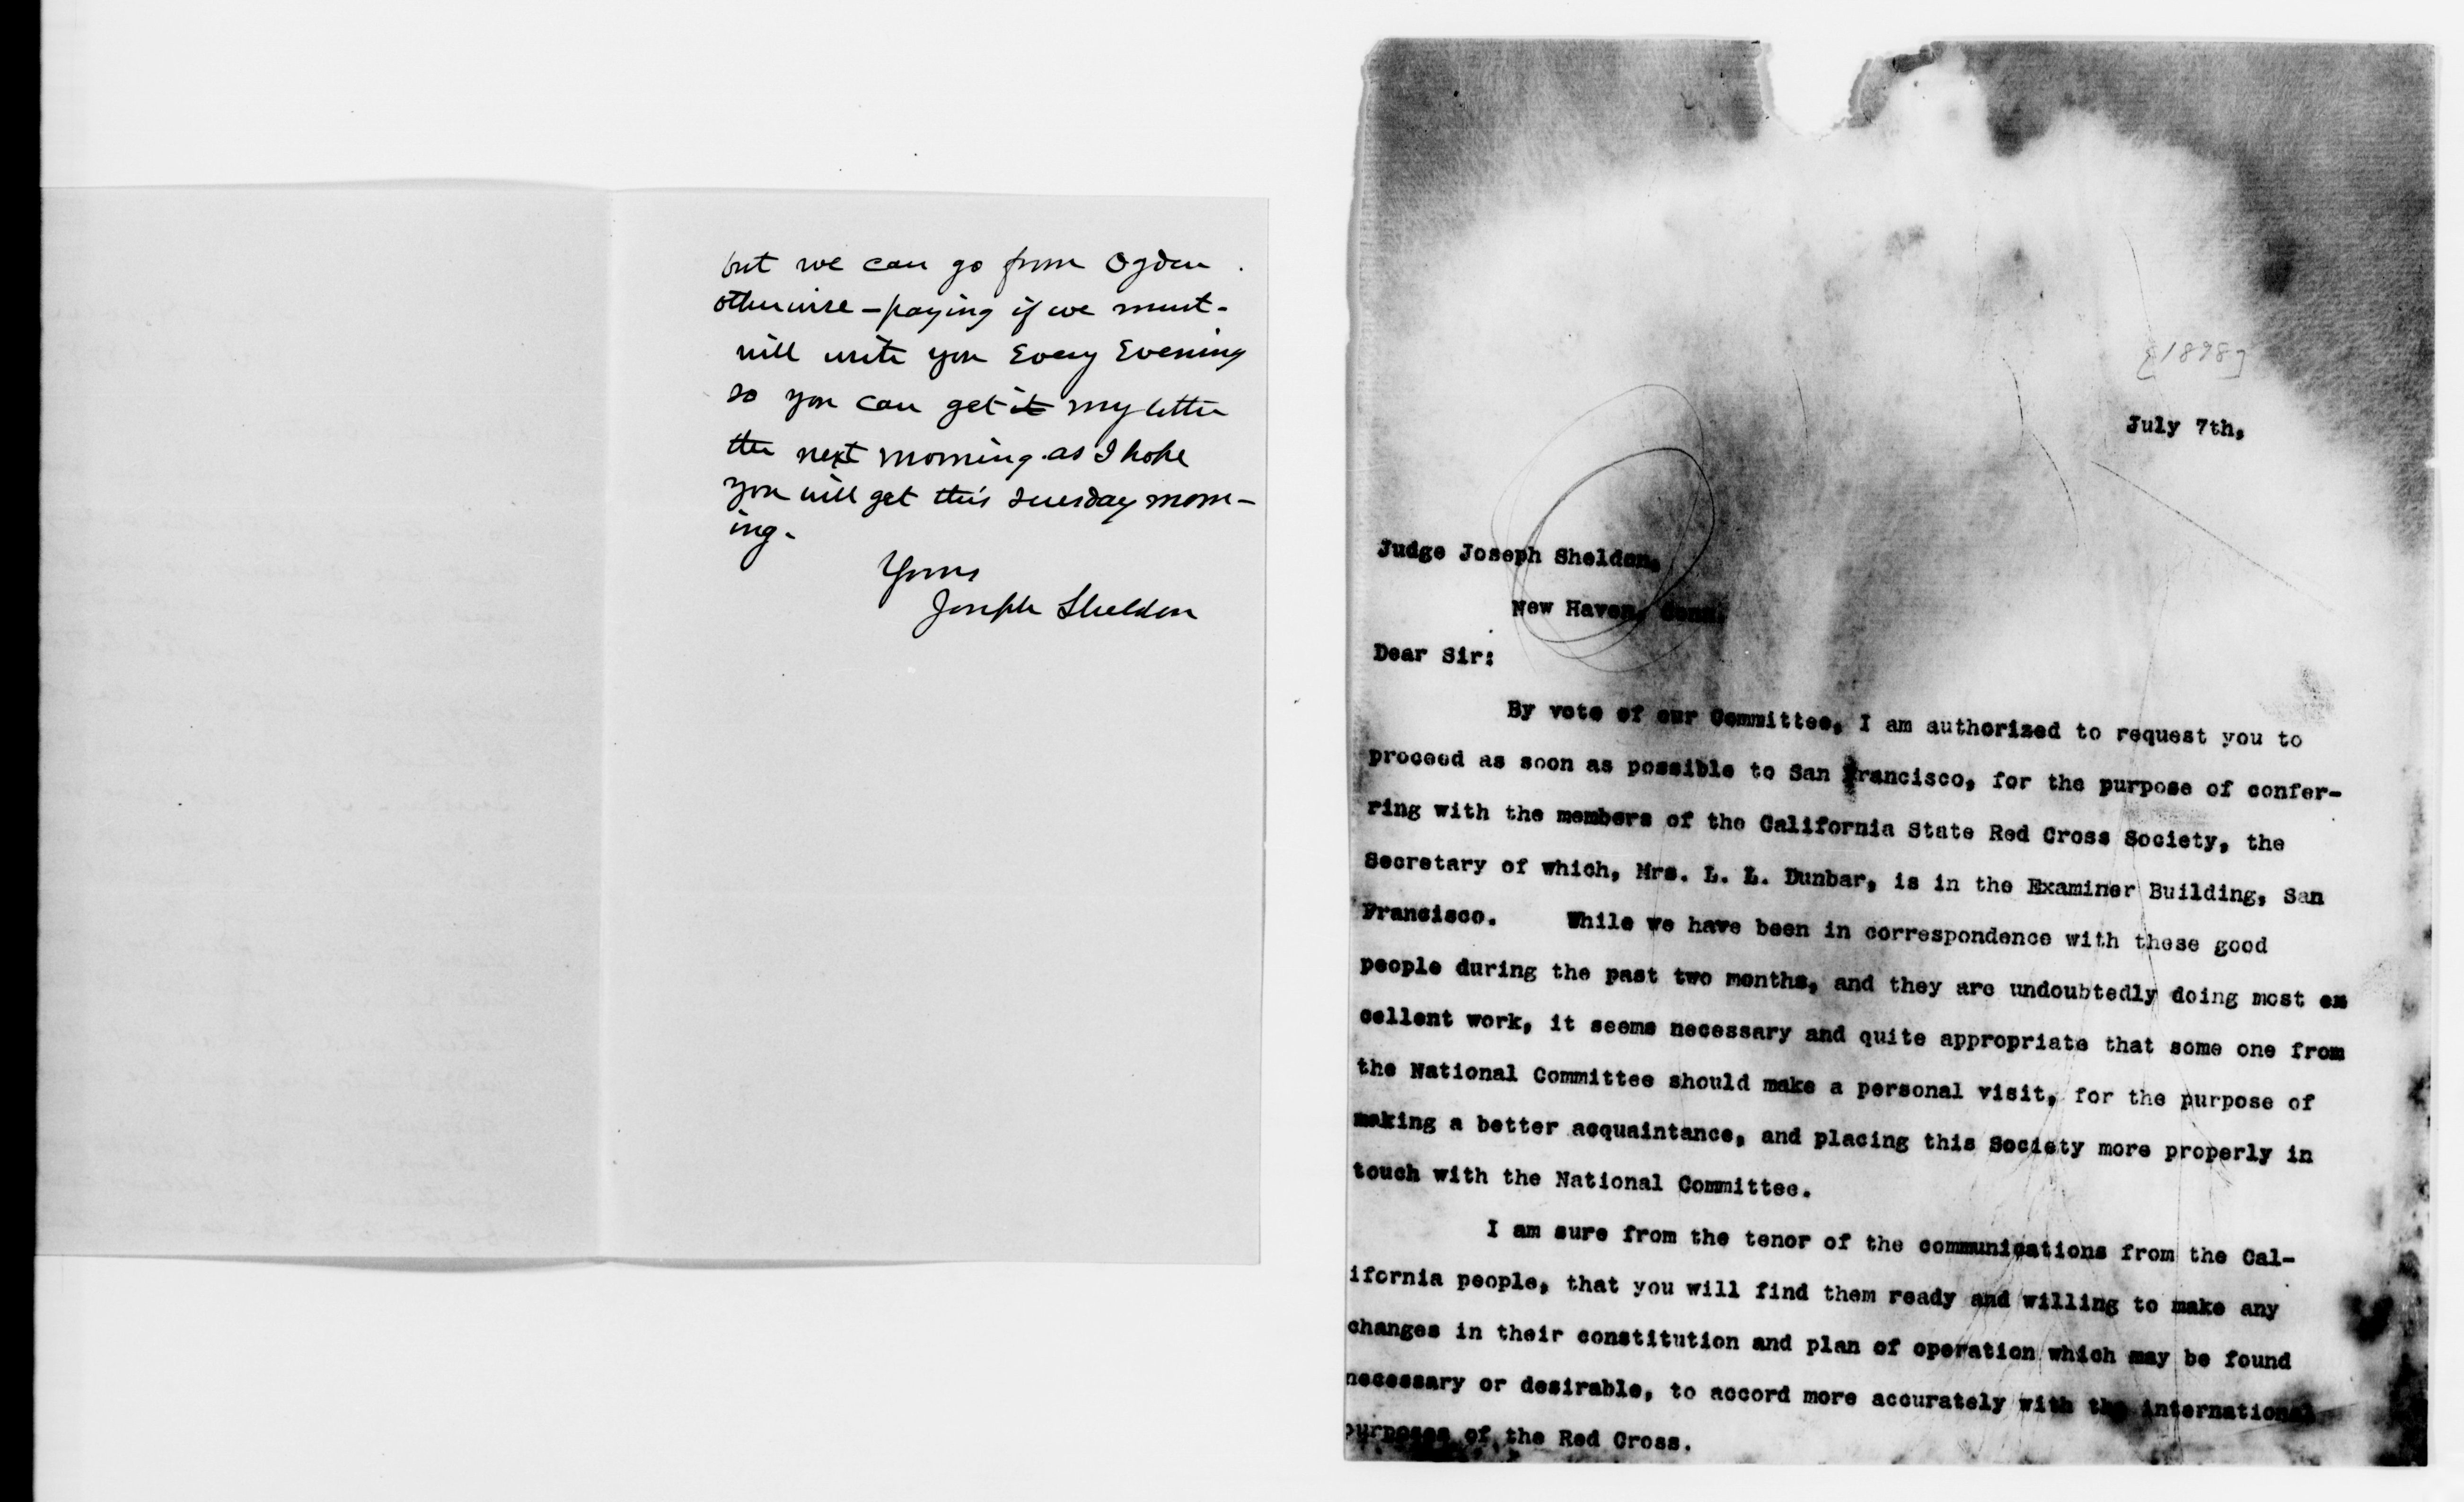 but we can go from Ogden.
otherwise - paying if we must -
will write you Every Evening
so you can get it my letter
the next morning. as I hope
you will get this Tuesday morn-
ing.
Yours
Joseph Sheldon
[1898]
July 7th,
Judge Joseph Sheldon,
New Haven, Conn.
Dear Sir:
By vote of our Committee, I am authorized to request you to
proceed as soon as possible to San Francisco, for the purpose of confer-
ring with the members of the California State Red Cross Society, the
Secretary of which, Mrs. L. L. Dunbar, is in the Examiner Building, San
Francisco. While we have been in correspondence with these good
people during the past two months, and they are undoubtedly doing most ex
cellent work, it seems necessary and quite appropriate that some one from
the National Committee should make a personal visit, for the purpose of
making a better acquaintance, and placing this Society more properly in
touch with the National Committee.
I am sure from the tenor of the communications from the Cal-
ifornia people, that you will find them ready and willing to make any
changes in their constitution and plan of operation which may be found
necessary or desirable, to accord more accurately with the international
purposes of the Red Cross.